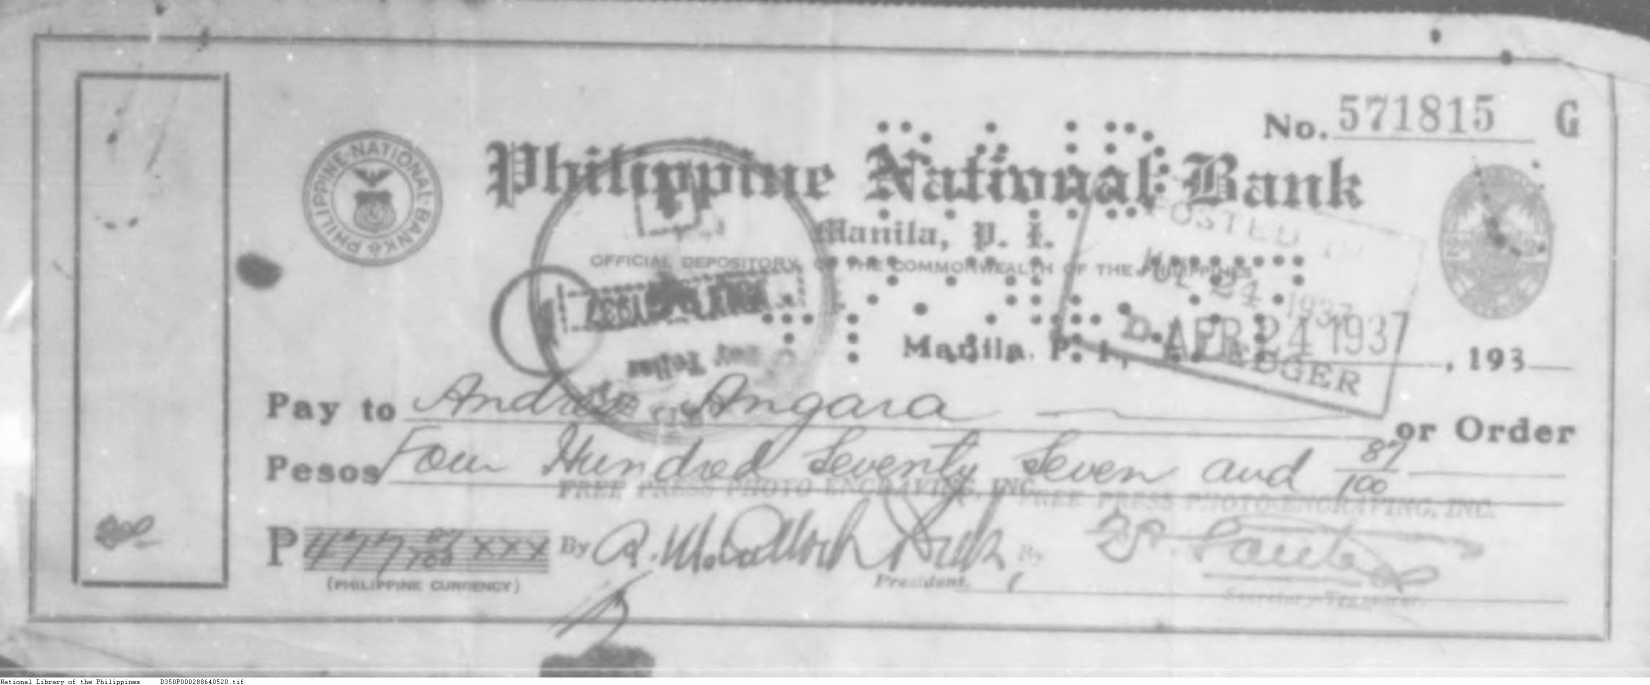 No. 571815 G
PHILIPPINE NATIONAL BANK
Philippine National Bank
Manila, P. I.
OFFICIAL DEPOSITORY OF THE COMMONWEALTH OF THE PHILIPPINES
POSTED IN
24 1937
LEDGER
Manila. P. I., APR 24 1937, 193
Pay to Andres Angara or Order
Pesos Four Hundred Seventy Seven and 87/100
FREE PRESS PHOTO ENGRAVING, INC. FREE PRESS PHOTO ENGRAVING, INC.
P 477 87/100 XXX By R. McCulloch Dick By
(PHILIPPINE CURRENCY)
President.
Secretary-Treasurer.
National Library of the Philippines D350P000288640520.tif